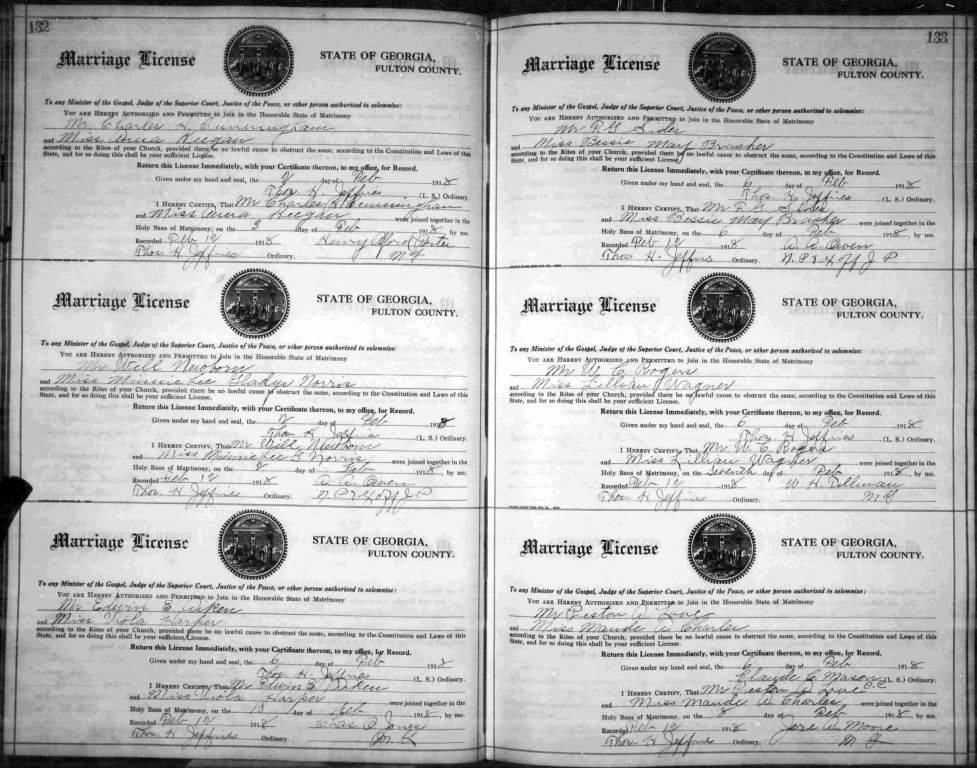 132
Marriage License
STATE OF GEORGIA,
FULTON COUNTY.
To any Minister of the Gospel, Judge of the Superior Court, Justice of the Peace, or other person authorized to solemnize:
YOU ARE HEREBY AUTHORIZED AND PERMITTED to Join in the Honorable State of Matrimony
Mr Charles H Cunningham
and Miss Anna Keegan
according to the Rites of your Church, provided there be no lawful cause to obstruct the same, according to the Constitution and Laws of this
State, and for so doing this shall be your sufficient License.
Return this License Immediately, with your Certificate thereon, to my office, for Record.
Given under my hand and seal, the 2 day of Feb 1918
Thos. H. Jeffries (L. S.) Ordinary.
I HEREBY CERTIFY, That Mr Charles H Cunningham
and Miss Anna Keegan were joined together in the
Holy Bans of Matrimony, on the 3 day of Feb 1918, by me.
Recorded Feb 12 1918 Henry Alford Porter
Thos H Jeffries Ordinary. M G
Marriage License
STATE OF GEORGIA,
FULTON COUNTY.
To any Minister of the Gospel, Judge of the Superior Court, Justice of the Peace, or other person authorized to solemnize:
YOU ARE HEREBY AUTHORIZED AND PERMITTED to Join in the Honorable State of Matrimony
Mr Will Newborn
and Miss Minnie Lee Gladys Norris
according to the Rites of your Church, provided there be no lawful cause to obstruct the same, according to the Constitution and Laws of this
State, and for so doing this shall be your sufficient License.
Return this License Immediately, with your Certificate thereon, to my office, for Record.
Given under my hand and seal, the 2 day of Feb 1918
Thos H Jeffries (L. S.) Ordinary.
I HEREBY CERTIFY, That Mr Will Newborn
and Miss Minnie Lee G Norris were joined together in the
Holy Bans of Matrimony, on the 2 day of Feb 1918, by me.
Recorded Feb 12 1918 A. A. Owen
Thos H Jeffries Ordinary. N. P. & Ex off J P
Marriage License
STATE OF GEORGIA,
FULTON COUNTY.
To any Minister of the Gospel, Judge of the Superior Court, Justice of the Peace, or other person authorized to solemnize:
YOU ARE HEREBY AUTHORIZED AND PERMITTED to Join in the Honorable State of Matrimony
Mr Edwin E Aiken
and Miss Viola Harper
according to the Rites of your Church, provided there be no lawful cause to obstruct the same, according to the Constitution and Laws of this
State, and for so doing this shall be your sufficient License.
Return this License Immediately, with your Certificate thereon, to my office, for Record.
Given under my hand and seal, the 6 day of Feb 1918
Thos H Jeffries (L. S.) Ordinary.
I HEREBY CERTIFY, That Mr Edwin E Aiken
and Miss Viola Harper were joined together in the
Holy Bans of Matrimony, on the 10 day of Feb 1918, by me.
Recorded Feb 12 1918 Chas. O. Jones
Thos H Jeffries Ordinary. M. G
133
Marriage License
STATE OF GEORGIA,
FULTON COUNTY.
To any Minister of the Gospel, Judge of the Superior Court, Justice of the Peace, or other person authorized to solemnize:
YOU ARE HEREBY AUTHORIZED AND PERMITTED to Join in the Honorable State of Matrimony
Mr R. G Sides
and Miss Bessie May Brasher
according to the Rites of your Church, provided there be no lawful cause to obstruct the same, according to the Constitution and Laws of this
State, and for so doing this shall be your sufficient License.
Return this License Immediately, with your Certificate thereon, to my office, for Record.
Given under my hand and seal, the 6 day of Feb 1918
Thos H. Jeffries (L. S.) Ordinary.
I HEREBY CERTIFY, That Mr R. G Sides
and Miss Bessie May Brasher were joined together in the
Holy Bans of Matrimony, on the 6 day of Feb 1918, by me.
Recorded Feb 12 1918 A. A. Owen
Thos. H. Jeffries Ordinary. N. P & Ex off J P
Marriage License
STATE OF GEORGIA,
FULTON COUNTY.
To any Minister of the Gospel, Judge of the Superior Court, Justice of the Peace, or other person authorized to solemnize:
YOU ARE HEREBY AUTHORIZED AND PERMITTED to Join in the Honorable State of Matrimony
Mr W. C Rogers
and Miss Lillian Wagner
according to the Rites of your Church, provided there be no lawful cause to obstruct the same, according to the Constitution and Laws of this
State, and for so doing this shall be your sufficient License.
Return this License Immediately, with your Certificate thereon, to my office, for Record.
Given under my hand and seal, the 6 day of Feb 1918
Thos H Jeffries (L. S.) Ordinary.
I HEREBY CERTIFY, That Mr W. C Rogers
and Miss Lillian Wagner were joined together in the
Holy Bans of Matrimony, on the Seventh day of Feb 1918, by me.
Recorded Feb 12 1918 W. H. Tillman
Thos H Jeffries Ordinary. M G
Marriage License
STATE OF GEORGIA,
FULTON COUNTY.
To any Minister of the Gospel, Judge of the Superior Court, Justice of the Peace, or other person authorized to solemnize:
YOU ARE HEREBY AUTHORIZED AND PERMITTED to Join in the Honorable State of Matrimony
Mr Preston A Love
and Miss Maude A Charles
according to the Rites of your Church, provided there be no lawful cause to obstruct the same, according to the Constitution and Laws of this
State, and for so doing this shall be your sufficient License.
Return this License Immediately, with your Certificate thereon, to my office, for Record.
Given under my hand and seal, the 6 day of Feb 1918
Claude C. Mason (L. S.) Ordinary.
I HEREBY CERTIFY, That Mr Preston A Love
and Miss Maude A Charles were joined together in the
Holy Bans of Matrimony, on the 8 day of Feb 1918, by me.
Recorded Feb 12 1918 Jere A. Moore
Thos H Jeffries Ordinary. M G